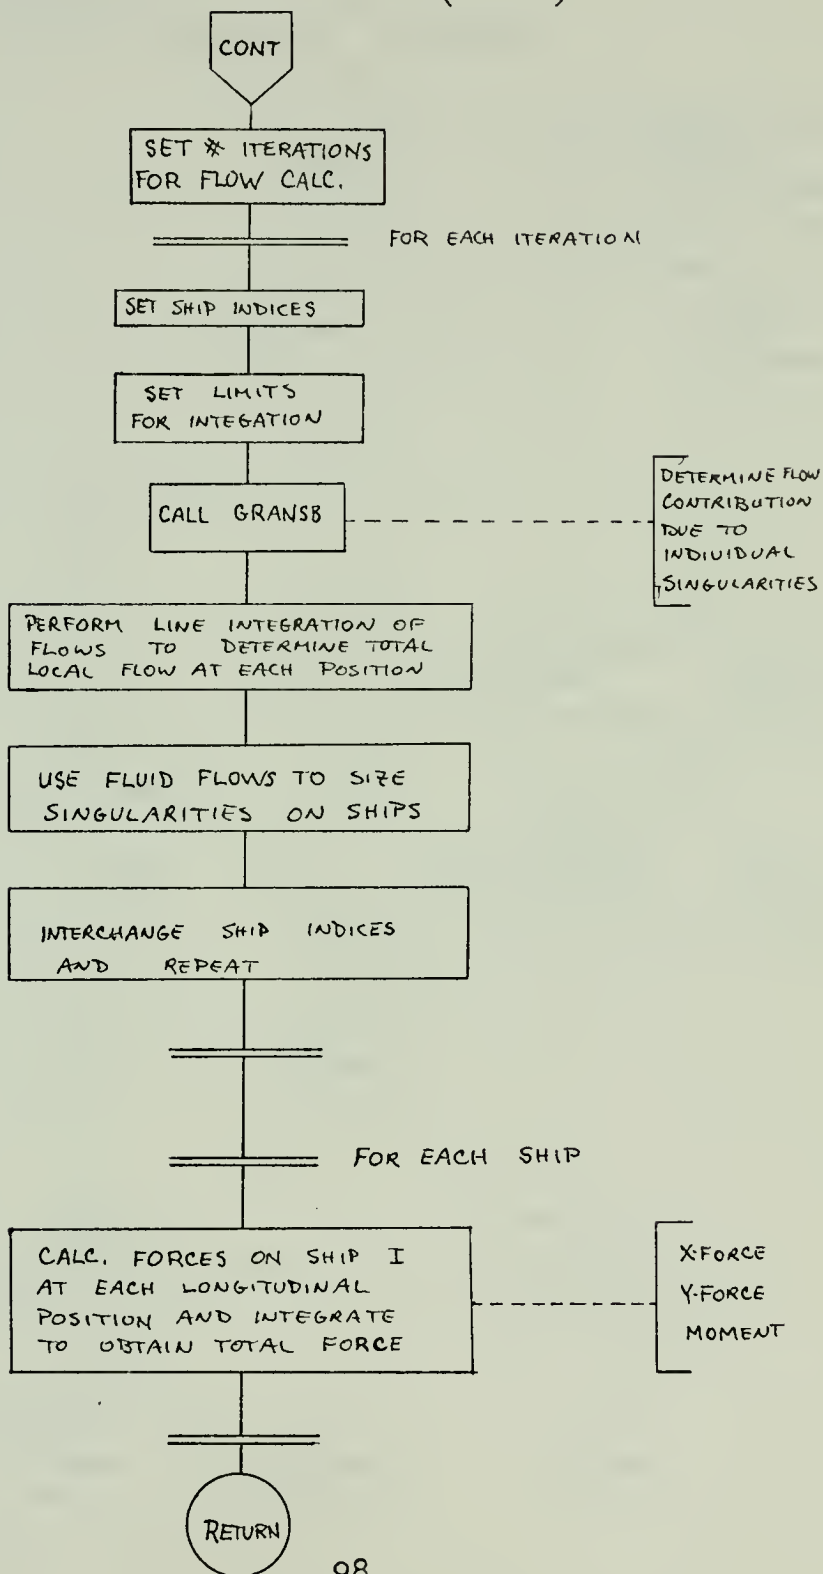 CONT
SET # ITERATIONS
FOR FLOW CALC.
FOR EACH ITERATION
SET SHIP INDICES
SET LIMITS
FOR INTEGATION
CALL GRANSB
DETERMINE FLOW
CONTRIBUTION
DUE TO
INDIVIDUAL
SINGULARITIES
PERFORM LINE INTEGRATION OF
FLOWS TO DETERMINE TOTAL
LOCAL FLOW AT EACH POSITION
USE FLUID FLOWS TO SIZE
SINGULARITIES ON SHIPS
INTERCHANGE SHIP INDICES
AND REPEAT
FOR EACH SHIP
CALC. FORCES ON SHIP I
AT EACH LONGITUDINAL
POSITION AND INTEGRATE
TO OBTAIN TOTAL FORCE
X-FORCE
Y-FORCE
MOMENT
RETURN
98